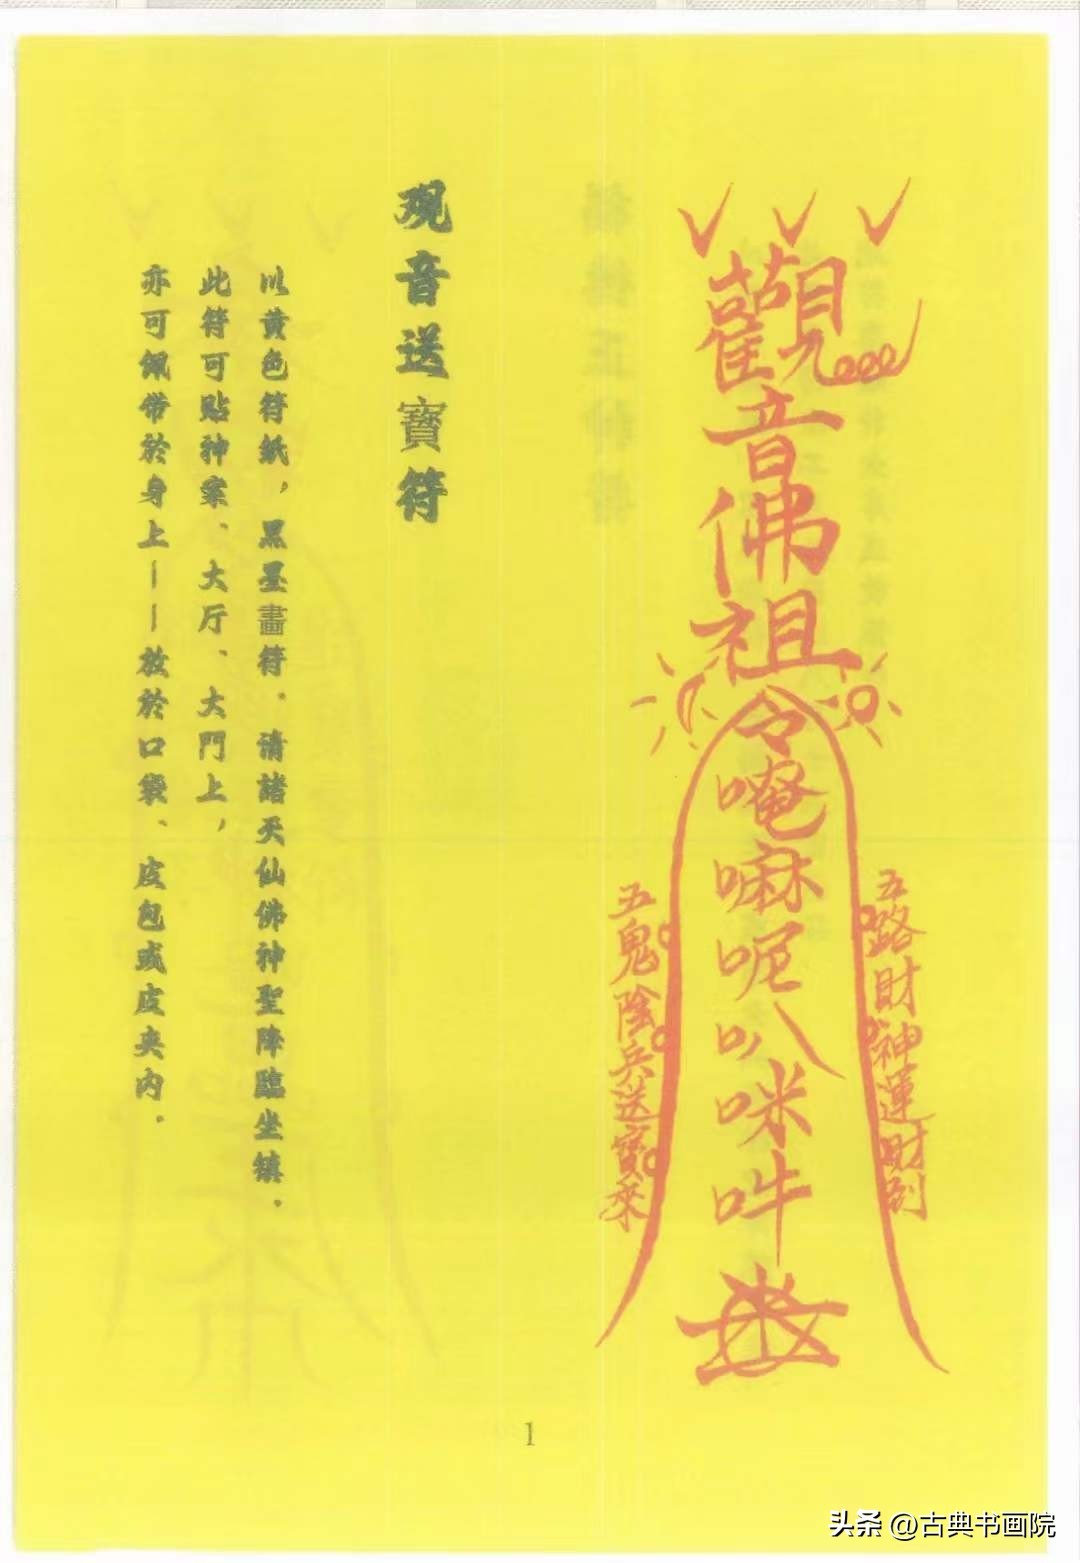 觀音佛祖
令唵嘛呢叭咪吽
五路財神運財到
五鬼陰兵送寶來
观音送寶符
以黄色符紙，黑墨畫符．请諸天仙佛神聖降臨坐镇．
此符可贴神案、大厅、大門上，
亦可佩带於身上——放於口袋、皮包或皮夹内．
1
头条 @古典书画院